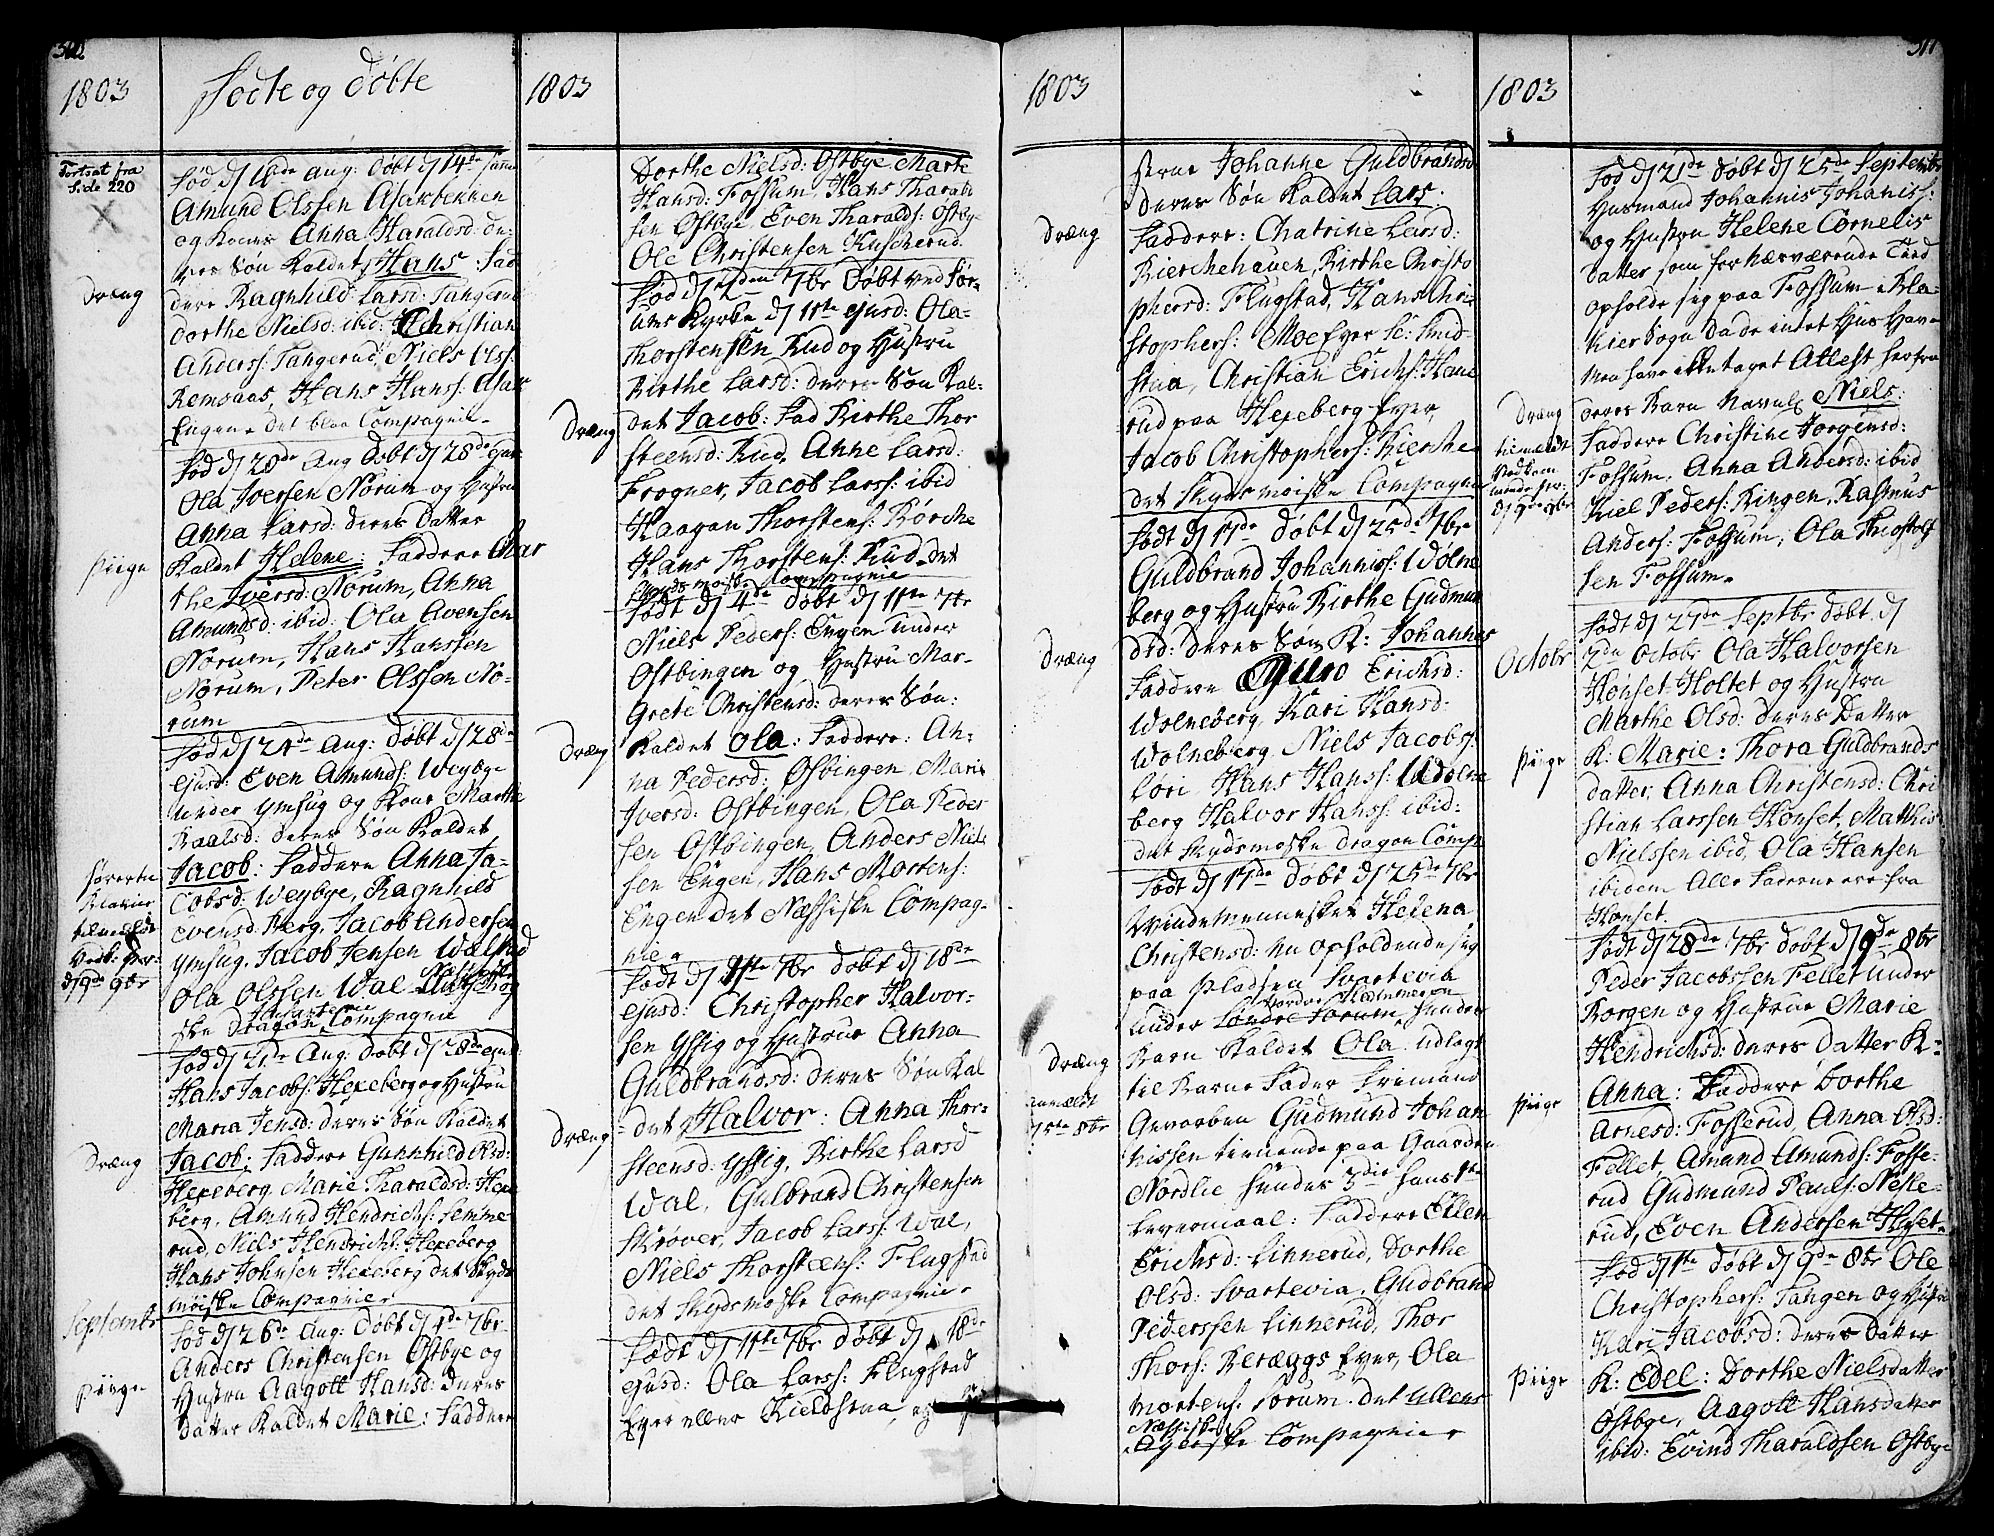 1803
Fødte og Døbte
Fortsat fra
Side 220
Fød d 16de Aug: Døbt d 14de samme
Amund Olssen Asakbekken
og Kone Anna Haraldsd: De-
res Søn Kaldet Hans: Fad
Dræng
dere Ragnhild Larsd: Tangerud
Dorthe Nielsd: ibid: Christian
Anderss: Tangerud, Niels Olss:
Remsaas, Hans Hanss: Asak
Engen det blaa Compagnie
Fød d 20de Aug Døbt d 28de ejus
Ola Iversen Norum og Hustru
Anna Larsd: deres Datter
Kaldet Helene: Faddere Mar
Piige
the Iversd: Norum, Anna
Amundsd: ibid: Ola Evensen
Norum, Hans Hanssen
Norum, Peter Olssen No-
rum
Fød d 24de Aug: Døbt d 28de
ejusd: Even Amunds: Weybye
under Ymsug og Kone Marthe
Raalsd: deres Søn Kaldet
Jacob: Faddere Anna Ja-
cobsd: Weybye, Ragnhild
Evensd: Berg, Jacob Andersen
Ymsug, Jacob Jensen Walstad
Ola Olssen Wal
ske Dragon Compagnie
d 9de 9br
Fød d 21de Aug: Døbt d 28de ejusd
Hans Jacobs: Hexeberg og Hustru
Maria Jensd: deres Søn Kaldet
Dræng
Jacob: Faddere Gunhild Olsd:
Hexeberg, Marie Tharaldsd: Hexe
berg, Amund Hendrichs: Lemme
rud, Niels Hendrichs: Hexeberg
Hans Johnsen Hexeberg det Skyds
møiske Compagnie
Septembr
Fød d 26de Aug: Døbt d 4de 7br
Anders Christensen Østbye og
Piige
Hustru Aagott Hansd: deres
Datter Kaldet Marie: Faddere
1803
Dorthe Nielsd: Østbye Marte
Hansd: Fossum, Hans Tharald
sen Østbye, Even Tharalds: Østbye
Ole Christensen Kuscherud
Fød d 2den 7br Døbt ved Sør-
ums Kyrke d 11te ejusd: Ola
Thorstensen Rud og Hustru
Birthe Larsd: deres Søn Kal-
Dræng
det Jacob: Fad Birthe Thor
steensd: Rud, Anne Larsd:
Frogner, Jacob Larss: ibid
Haagan Thorstens: Børche
Hans Thorstens: Rud det
Skydsmoske Compagnie
Født d 4de Døbt d 11te 7br
Niels Peders: Engen under
Østbingen og Hustru Mar-
grete Christensd: deres Søn:
Dræng
Kaldet Ola: Faddere: An-
na Pedersd: Østbingen, Marie
Iversd: Østbingen, Ola Peder
sen Østbingen, Anders Niel
sen Engen, Hans Mortens:
Engen det Næssiske Compag-
nie
Født d 11te 7br Døbt d 18de
ejusd: Christopher Halvor-
sen Yssig og Hustrue Anna
Guldbrandsd: deres Søn Kal
Dræng
det Halvor: Anna Thor-
steensd: Yssig, Birthe Larsd
Wal, Gulbrand Christensen
Skrøver, Jacob Larss: Wal,
Niels Thorsteens: Flugstad
det Skydsmoske Compagnie
Født d 11te 7br Døbt d 18de
ejusd: Ola Larss: Flugstad
Eyer eller Kieldstua, og
1803
Kone Johanne Guldbrandsd
deres Søn Kaldet Lars.
Dræng
Faddere: Chatrine Larsd:
Kierchehauen, Birthe Christo
phersd: Flugstad, Hans Chri-
stophers: Moe Eyer
stua, Christian Erichs: Hane
rud paa Hexeberg Eyer,
Jacob Christophers: Kierche
det Skydsmoiske Compagnie
Født d 17de Døbt d 25de 7br
Guldbrand Johaniss: Wolne
berg og Hustru Birthe Gudmun
Dræng
dsd: deres Søn K: Johannes
Faddere Erichsd:
Wolneberg, Kari Hansd:
Wolneberg Niels Jacobs:
Løri, Hans Hanss: Wolne
berg Halvor Hanss: ibid:
det Skydsmoske Dragon Comp
Født d 17de Døbt d 25de 7br
Qvindemennesket Helena
Christensd: nu opholdende sig
paa Pladsen Svartevia
under Søndre Sorum, hendes
Dræng
Barn Kaldet Ola, udlagt
til Barne Fader Friemand
anmeldt
15de 8br
Gevorben Gudmund Johan
nissen tienende paa Gaarden
Nordlie hendes 3die hans 1te
Levermaal: Faddere Ellen
Erichsd: Linnerud, Dorthe
Olsd: Svartevia, Gudbrand
Pederssen Linnerud, Thor
Thors: Beræggs Eyer, Ola
Mortens: Sorum det Ullens
Næssiske Compagnie
1803
Fød d 21de Døbt d 25de Septembr
Husmand Johannis Johaniss:
og Hustru Helene Cornelis
datter som for nærværende Tiid
opholde sig paa Fossum i Bla-
kier Sogn da de intet Huus Have
men have ikke taget Attest herfra
Dræng
deres Barn Navnl: Niels:
Faddere Christine Jorgensd:
Fossum, Anna Andersd: ibid
Kiel Peders: Ringen, Rasmus
Anders: Fossum, Ola Thostolf
sen Fossum.
Født d 27de Septbr døbt d
Octobr
2de Octobr Ola Halvorsen
Hønset Holtet og Hustru
Marthe Olsd: deres Datter
Piige
K: Marie: Thora Guldbrands
datter, Anna Christensd: Chri
stian Larssen Hønset, Mathis
Nielssen ibid, Ola Hansen
ibidem Alle Fadderne ere fra
Hønset.
Født d 28de 7br døbt d 9de 8br
Peder Jacobssen Fellet under
Borgen og Hustrue Marie
Hendrichsd: deres Datter K:
Piige
Anna: Faddere Dorthe
Arnesd: Fosserud, Anna Olsd:
Fellet, Amund Amunds: Fosse-
rud, Gudmund Pauls: Neske-
rud, Even Andersen Hønset
Fød d 1te Døbt d 9de 8br Ole
Christophers: Tangen og Hustru
Kari Jacobsd: deres Datter
Piige
K: Edel: Dorthe Nielsdatter
Østbye, Aagott Hansdatter
ibid: Evind Tharaldsen Østbye